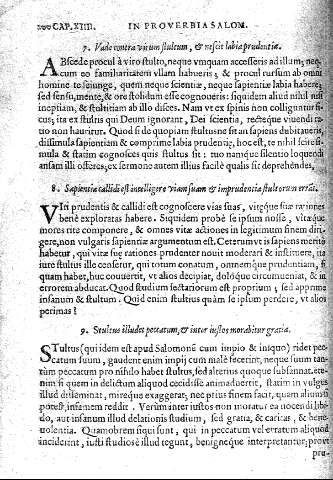 200 CAP. XIIII. IN PROVERBIA SALOM.
7. Vade contra virum stultum, & nescit labia prudentiæ.
ABscede procul à viro stulto, neque vmquam accesseris ad illum; nec
cum eo familiaritatem vllam habueris; & procul rursum ab omni
homine te seiunge, quem neque scientiæ, neque sapientiæ labia habere;
sed sensu, mente, & ore stolidum esse cognoueris: siquidem aliud nihil nisi
ineptiam, & stultitiam ab illo disces. Nam vt ex spinis non colliguntur fi-
cus; ita ex stultis qui Deum ignorant, Dei scientia, rectéque viuendi ra-
tio non hauritur. Quod si de quopiam stultusne sit an sapiens dubitaueris,
dissimula sapientiam & comprime labia prudentiæ, hoc est, te nihil scire si-
mula & statim cognosces quis stultus sit: tuo namque silentio loquendi
ansam illi offeres; ex sermone autem illius facilè qualis sit deprehendes,
8. Sapientia callidi est intelligere viam suam & imprudentia stultorum errãs.
VIri prudentis & callidi est cognoscere vias suas, vitæque suæ rationes
benè exploratas habere. Siquidem probè se ipsum nosse, vitæque
mores ritè componere, & omnes vitæ actiones in legitimum finem diri-
gere, non vulgaris sapientiæ argumentum est. Ceterum vt is sapiens meritò
habetur, qui vitæ suæ rationes prudenter nouit moderari & instituere, ita
iure stultus ille censetur, qui totum conatum, omnemque prudentiam, si
quam habet, huc conuertit, vt alios decipiat, dolóque circumueniat, & in
errorem abducat. Quod studium sectariorum est proprium; sed apprimè
insanum & stultum. Quid enim stultius quàm se ipsum perdere, vt alios
perimas?
9. Stultus illudet peccatum, & inter iustos morabitur gratia.
STultus (qui idem est apud Salomonẽ cum impio & iniquo) ridet pec-
catum suum, gaudent enim impij cum malè fecerint, neque suum tan-
tùm peccatum pro nihilo habet stultus, sed alterius quoque subsannat. ete-
nim si quem in delictum aliquod cecidisse animaduertit, statim in vulgus
illud disseminat, miréque exaggerat; nec prius finem facit, quàm alium si
potest, infamem reddit. Verùm inter iustos non moratur ea nocendi libi-
do, aut insanum illud delationis studium, sed gratia, & caritas, & bene-
uolentia. Quamobrem si qui sunt, qui in peccatum vel erratum aliquod
inciderint, iusti studiosè illud tegunt, benignéque interpretantur; prout
pru-